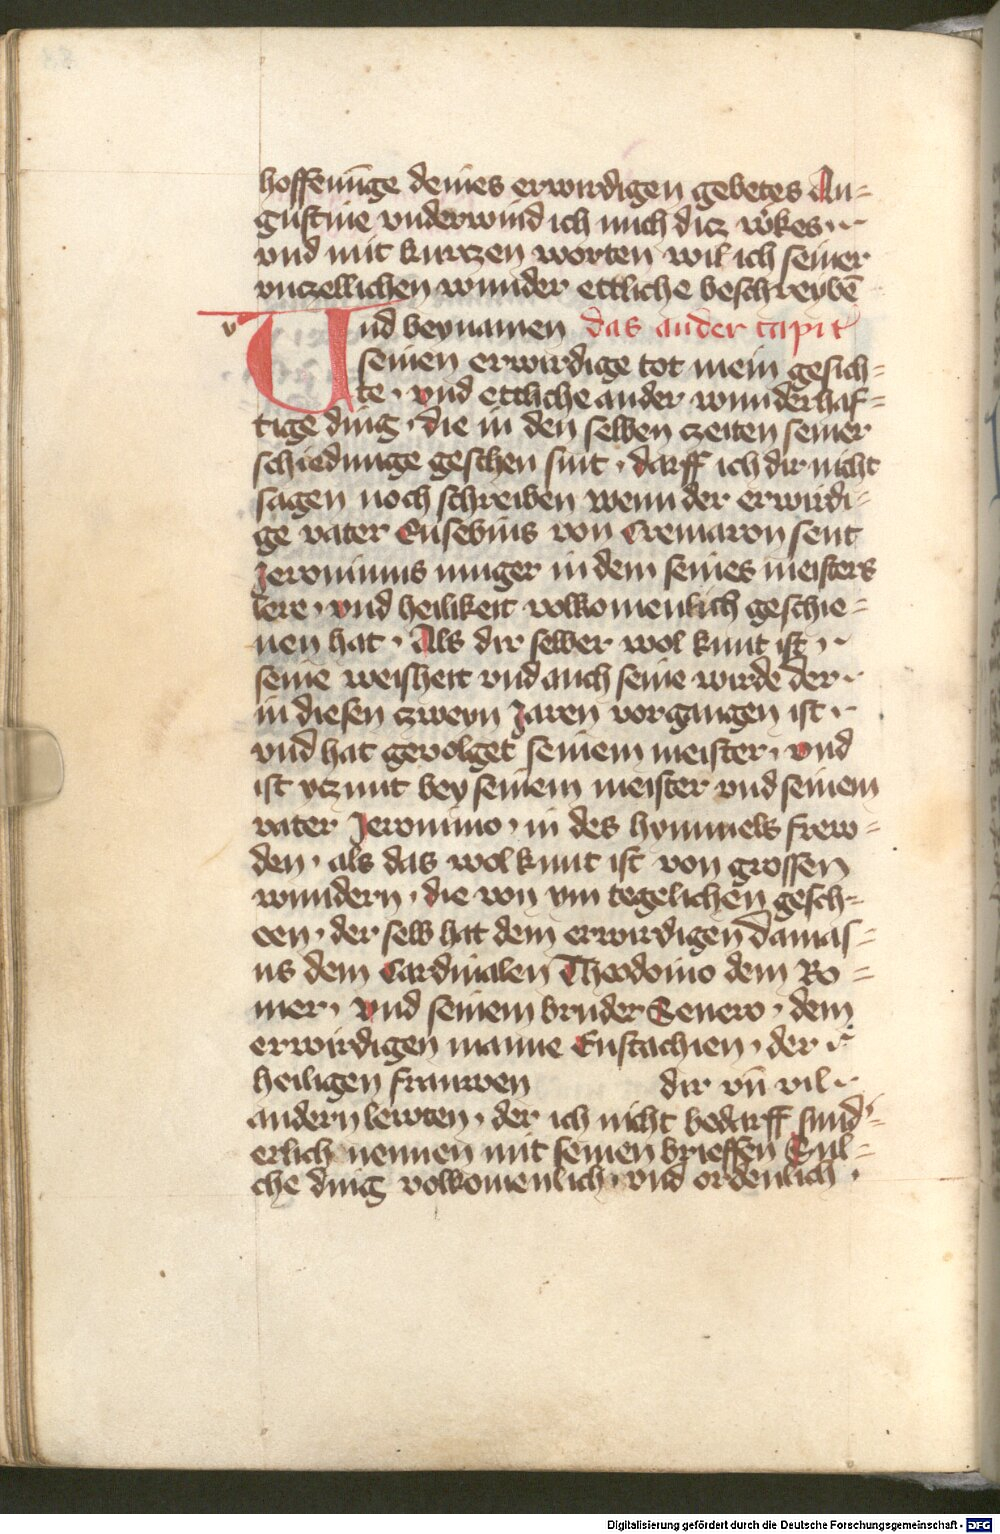 hoffenūge deines erwirdigen gebetes Au-
gustine vnderwind ich mich dicz ẘkes
vnd mit kurczen worten wil ich seiner
vnczellichen wunder ettliche beschreybē
v Vnd beynamen das ander capit
seinen erwirdige tot mein gesich-
te · vnd ettliche ander wunderhaf-
tige ding · die in den selben czeiten seiner
schiedunge geschen sint · darff ich dir nicht
sagen noch schreiben wenn der erwirdi-
ge vater Eusebius von Cremaron sent
Jeronimus iunger in dem seines meisters
lere · vnd heilikeit volkomenlich geschie-
nen hat · Als dir selber wol kunt ist ·
seine weisheit vnd auch seine wirde der
in diesen czweyn Jaren vorgangen ist
vnd hat gevolget seinem meister · vnd
ist yczunt bey seinem meister vnd seinem
vater Jeronimo · in des hymmels frew-
den · als das wol kunt ist von grossen
wundern · die von ym tegelichen gesch-
een · der selb hat dem erwirdigen Damas-
us dem Cardinalen Theodoino dem Ro-
mer · vnd seinem bruder Seuero · dem
erwirdigen manne Eustachien · der
heiligen frauwen dir vn̄ vil
andern lewten · der ich nicht bedarff sund-
erlich nennen mit seinen brieffen Sul-
che ding volkomenlich · vnd ordenlich ·
Digitalisierung gefördert durch die Deutsche Forschungsgemeinschaft - DFG